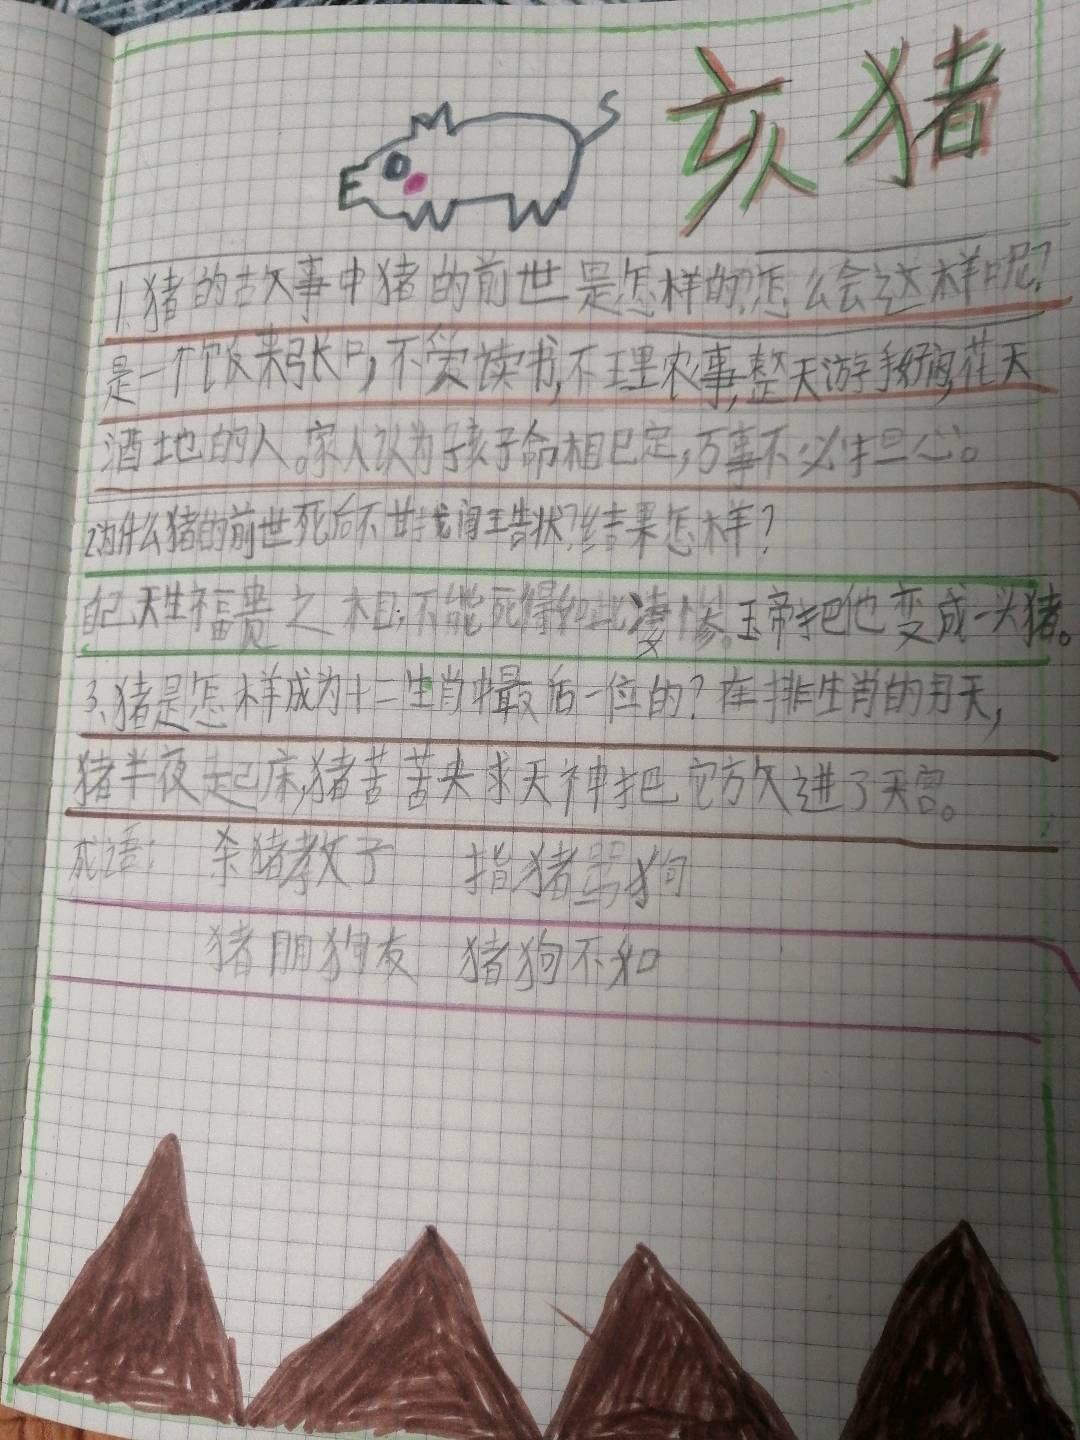 亥猪
1.猪的故事中猪的前世是怎样的?怎么会这样呢?
是一个饭来张口,不爱读书,不理农事,整天游手好闲,花天
酒地的人。家人认为孩子命相已定,万事不必担心。
2.为什么猪的前世死后不甘找阎王告状?结果怎样?
自己天生福贵之相,不能死得如此凄惨。玉帝把他变成一头猪。
3.猪是怎样成为十二生肖中最后一位的?在排生肖的月天,
猪半夜起床,猪苦苦央求天神把它放进了天宫。
成语: 杀猪教子 指猪骂狗
猪朋狗友 猪狗不如